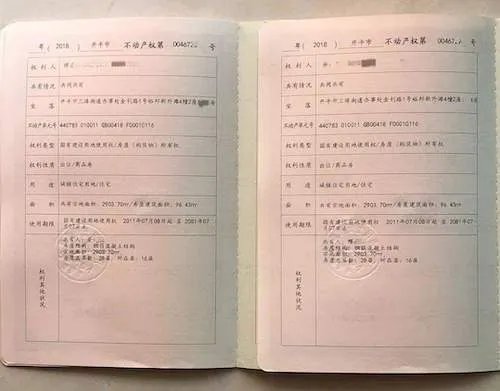 粤(2018) 开平市 不动产权第 00467 号
权利人
共有情况 共同共有
坐落 开平市三埠街道办事处金利路1号裕邦新外滩4幢2座 号
不动产单元号 440783 010011 GB00418 F00010116
权利类型 国有建设用地使用权/房屋(构筑物)所有权
权利性质 出让/商品房
用途 城镇住宅用地/住宅
面积 共有宗地面积:2903.70m²/房屋建筑面积:96.43m²
使用期限 国有建设用地使用权 2011年07月08日起 至 2081年07
月07日止
权利其他状况
共有人:
房屋结构:钢筋混凝土结构
宗地面积:2903.70m²
房屋总层数:28层,所在层:16层
(2018) 开平市 不动产权第 00467 号
权利人
共有情况 共同共有
坐落 开平市三埠街道办事处金利路1号裕邦新外滩4幢2座
不动产单元号 440783 010011 GB00418 F00010116
权利类型 国有建设用地使用权/房屋(构筑物)所有权
权利性质 出让/商品房
用途 城镇住宅用地/住宅
面积 共有宗地面积:2903.70m²/房屋建筑面积:96.43m²
使用期限 国有建设用地使用权 2011年07月08日起 至 2081年07
月07日止
权利其他状况
共有人:
房屋结构:钢筋混凝土结构
宗地面积:2903.70m²
房屋总层数:28层,所在层:16层